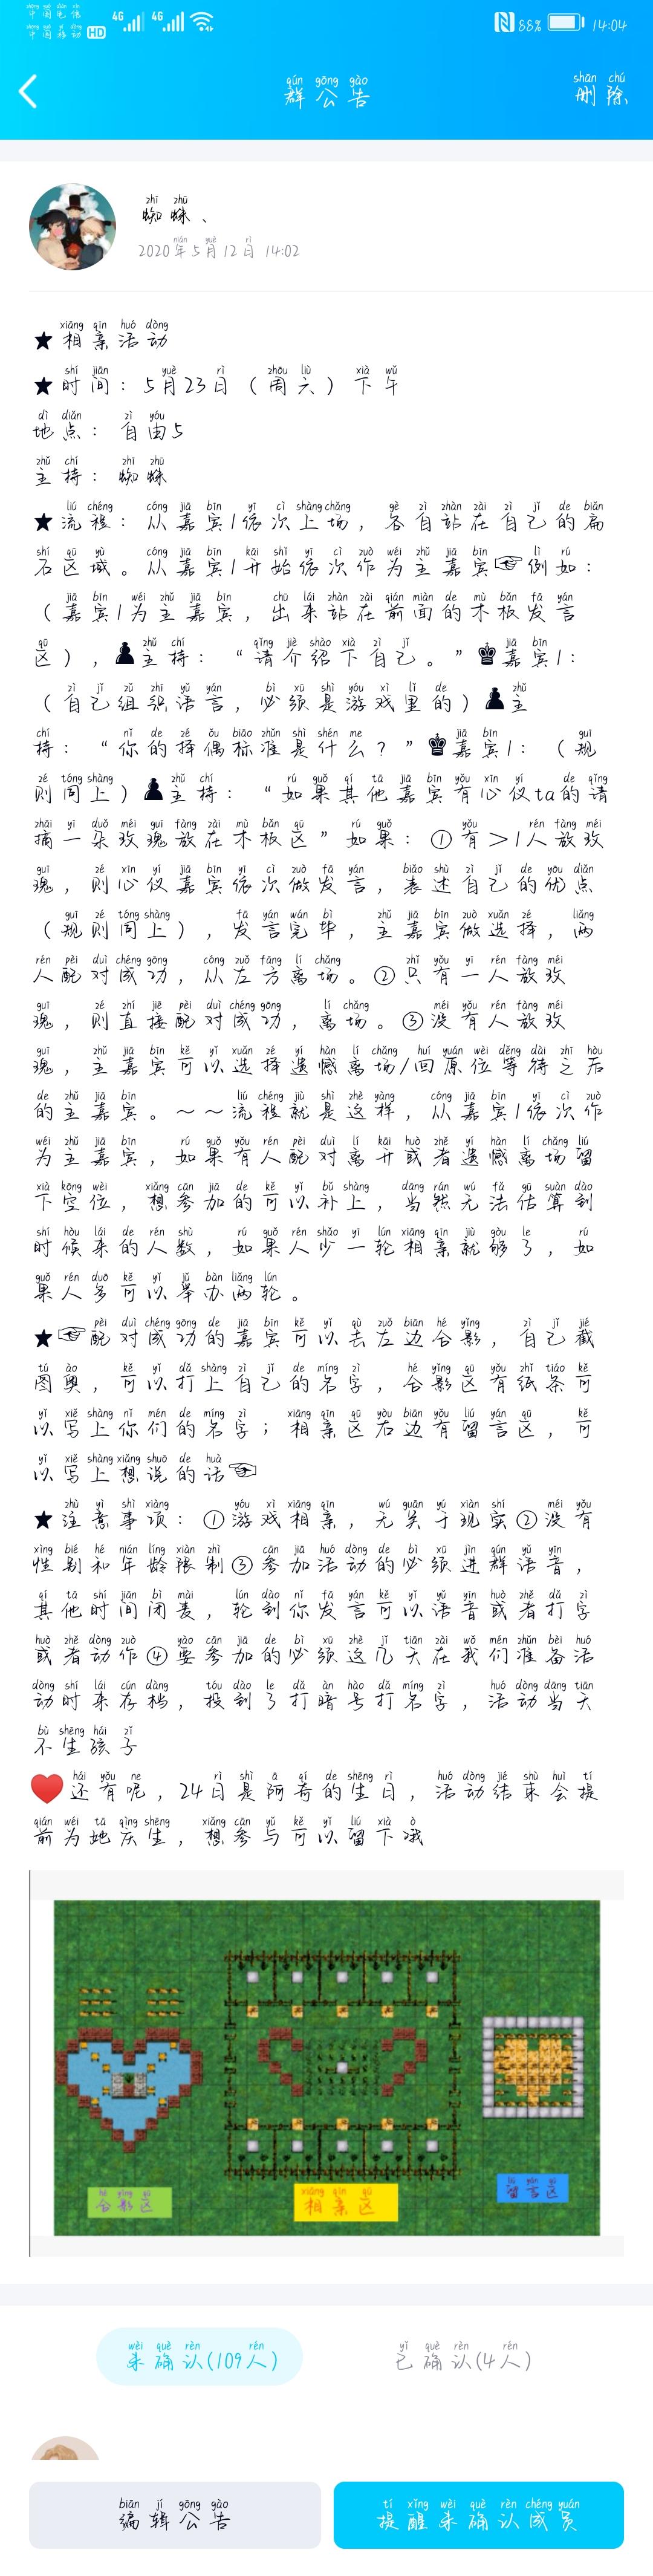 中国电信
中国移动 HD 4G 4G 88% 14:04
群公告 删除
蜘蛛、
2020年5月12日 14:02
★相亲活动
★时间：5月23日（周六）下午
地点：自由5
主持：蜘蛛
★流程：从嘉宾1依次上场，各自站在自己的扁
石区域。从嘉宾1开始依次作为主嘉宾☞例如：
（嘉宾1为主嘉宾，出来站在前面的木板发言
区），♟主持：“请介绍下自己。”♚嘉宾1：
（自己组织语言，必须是游戏里的）♟主
持：“你的择偶标准是什么？”♚嘉宾1：（规
则同上）♟主持：“如果其他嘉宾有心仪ta的请
摘一朵玫瑰放在木板区”如果：①有＞1人放玫
瑰，则心仪嘉宾依次做发言，表述自己的优点
（规则同上），发言完毕，主嘉宾做选择，两
人配对成功，从左方离场。②只有一人放玫
瑰，则直接配对成功，离场。③没有人放玫
瑰，主嘉宾可以选择遗憾离场/回原位等待之后
的主嘉宾。～～流程就是这样，从嘉宾1依次作
为主嘉宾，如果有人配对离开或者遗憾离场留
下空位，想参加的可以补上，当然无法估算到
时候来的人数，如果人少一轮相亲就够了，如
果人多可以举办两轮。
★☞配对成功的嘉宾可以去左边合影，自己截
图奥，可以打上自己的名字，合影区有纸条可
以写上你们的名字；相亲区右边有留言区，可
以写上想说的话☜
★注意事项：①游戏相亲，无关于现实②没有
性别和年龄限制③参加活动的必须进群语音，
其他时间闭麦，轮到你发言可以语音或者打字
或者动作④要参加的必须这几天在我们准备活
动时来存档，投到了打暗号打名字，活动当天
不生孩子
❤还有呢，24日是阿奇的生日，活动结束会提
前为她庆生，想参与可以留下哦
合影区
相亲区
留言区
未确认(109人) 已确认(4人)
编辑公告 提醒未确认成员